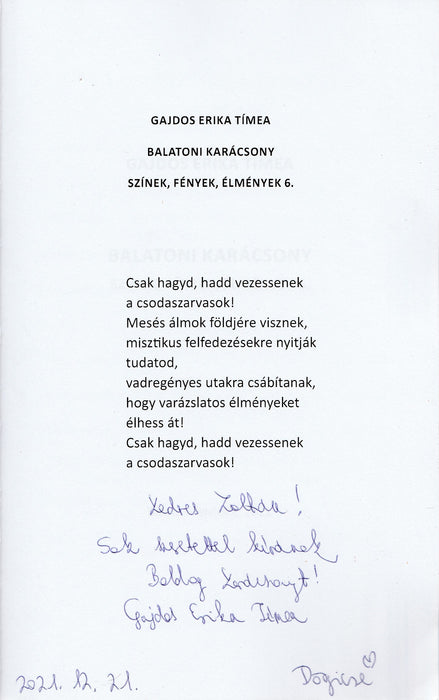 GAJDOS ERIKA TÍMEA
BALATONI KARÁCSONY
SZÍNEK, FÉNYEK, ÉLMÉNYEK 6.
Csak hagyd, hadd vezessenek
a csodaszarvasok!
Mesés álmok földjére visznek,
misztikus felfedezésekre nyitják
tudatod,
vadregényes utakra csábítanak,
hogy varázslatos élményeket
élhess át!
Csak hagyd, hadd vezessenek
a csodaszarvasok!
Kedves Zoltán!
Sok szeretettel kívánok
Boldog Karácsonyt!
Gajdos Erika Tímea
2021. 12. 21.